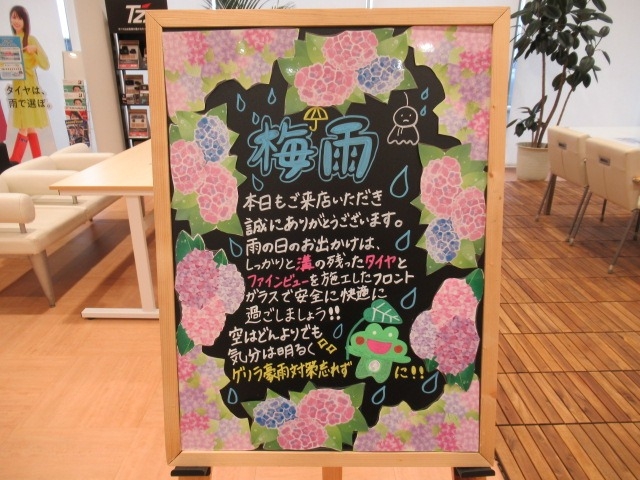 TZ
タイヤは、
雨で選ぼ。
梅雨
本日もご来店いただき
誠にありがとうございます。
雨の日のお出かけは、
しっかりと溝の残ったタイヤと
ファインビューを施工したフロント
ガラスで安全に快適に
過ごしましょう!!
空はどんよりでも
気分は明るく
ゲリラ豪雨対策忘れずに!!